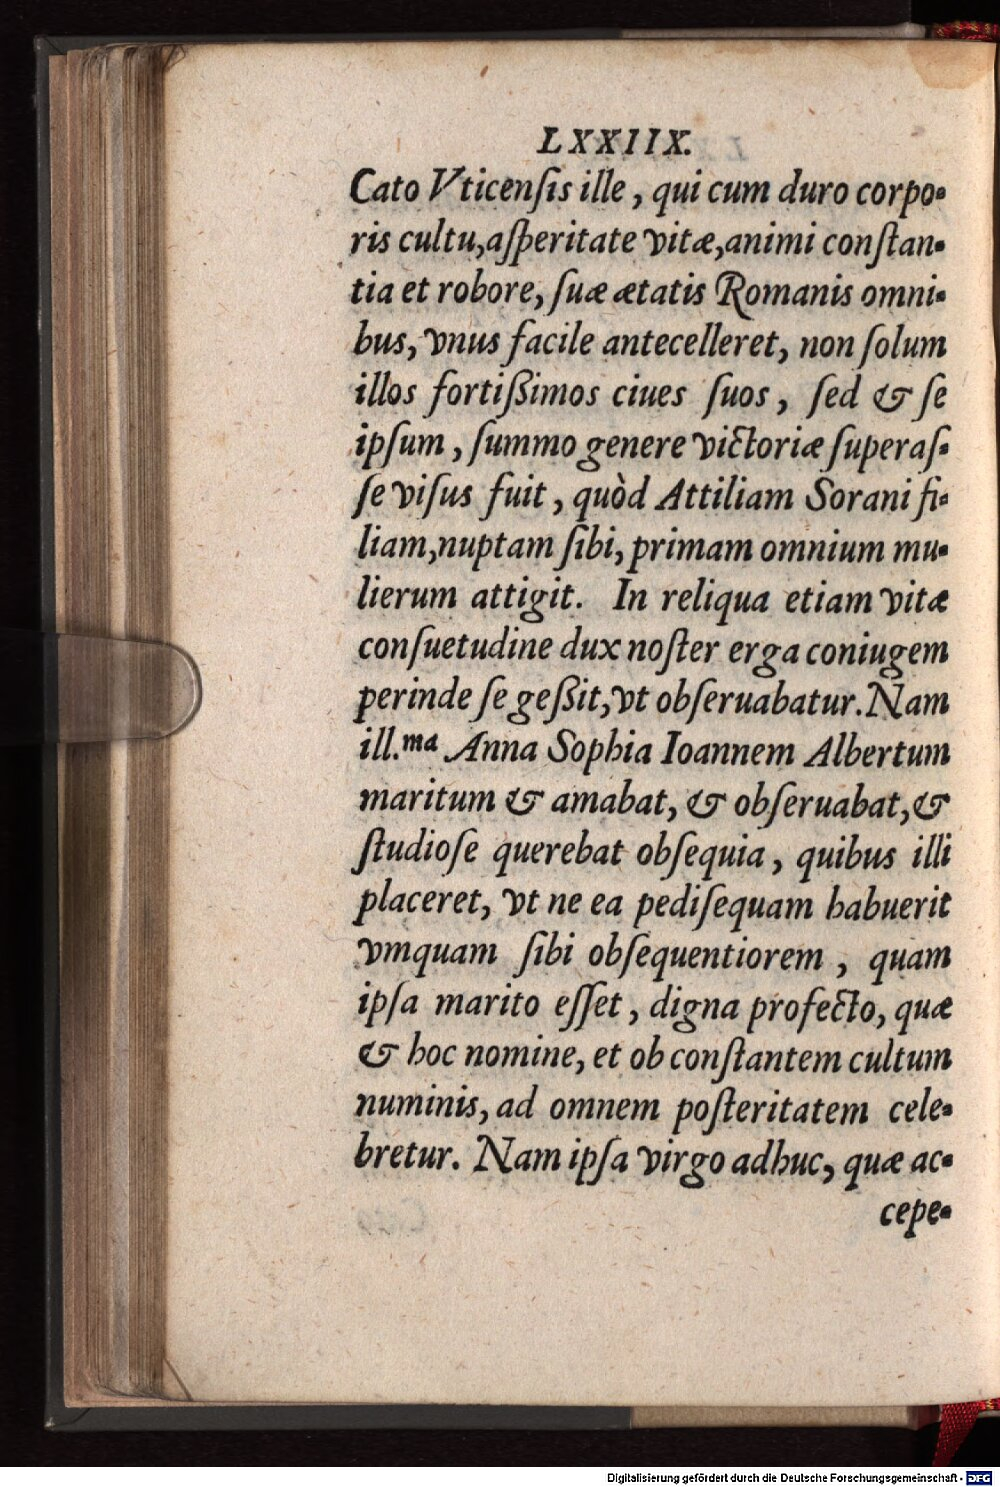 LXXIIX.
Cato Vticenſis ille, qui cum duro corpo-
ris cultu, aſperitate vitæ, animi conſtan-
tia et robore, ſuæ ætatis Romanis omni-
bus, vnus facile antecelleret, non ſolum
illos fortißimos ciues ſuos, ſed & ſe
ipſum, ſummo genere victoriæ ſuperaſ-
ſe viſus fuit, quòd Attiliam Sorani fi-
liam, nuptam ſibi, primam omnium mu-
lierum attigit. In reliqua etiam vitæ
conſuetudine dux noſter erga coniugem
perinde ſe geßit, vt obſeruabatur. Nam
ill.ma Anna Sophia Ioannem Albertum
maritum & amabat, & obſeruabat, &
ſtudioſe querebat obſequia, quibus illi
placeret, vt ne ea pediſequam habuerit
vmquam ſibi obſequentiorem, quam
ipſa marito eſſet, digna profecto, quæ
& hoc nomine, et ob conſtantem cultum
numinis, ad omnem poſteritatem cele-
bretur. Nam ipſa virgo adhuc, quæ ac-
cepe-
Digitalisierung gefördert durch die Deutsche Forschungsgemeinschaft - DFG